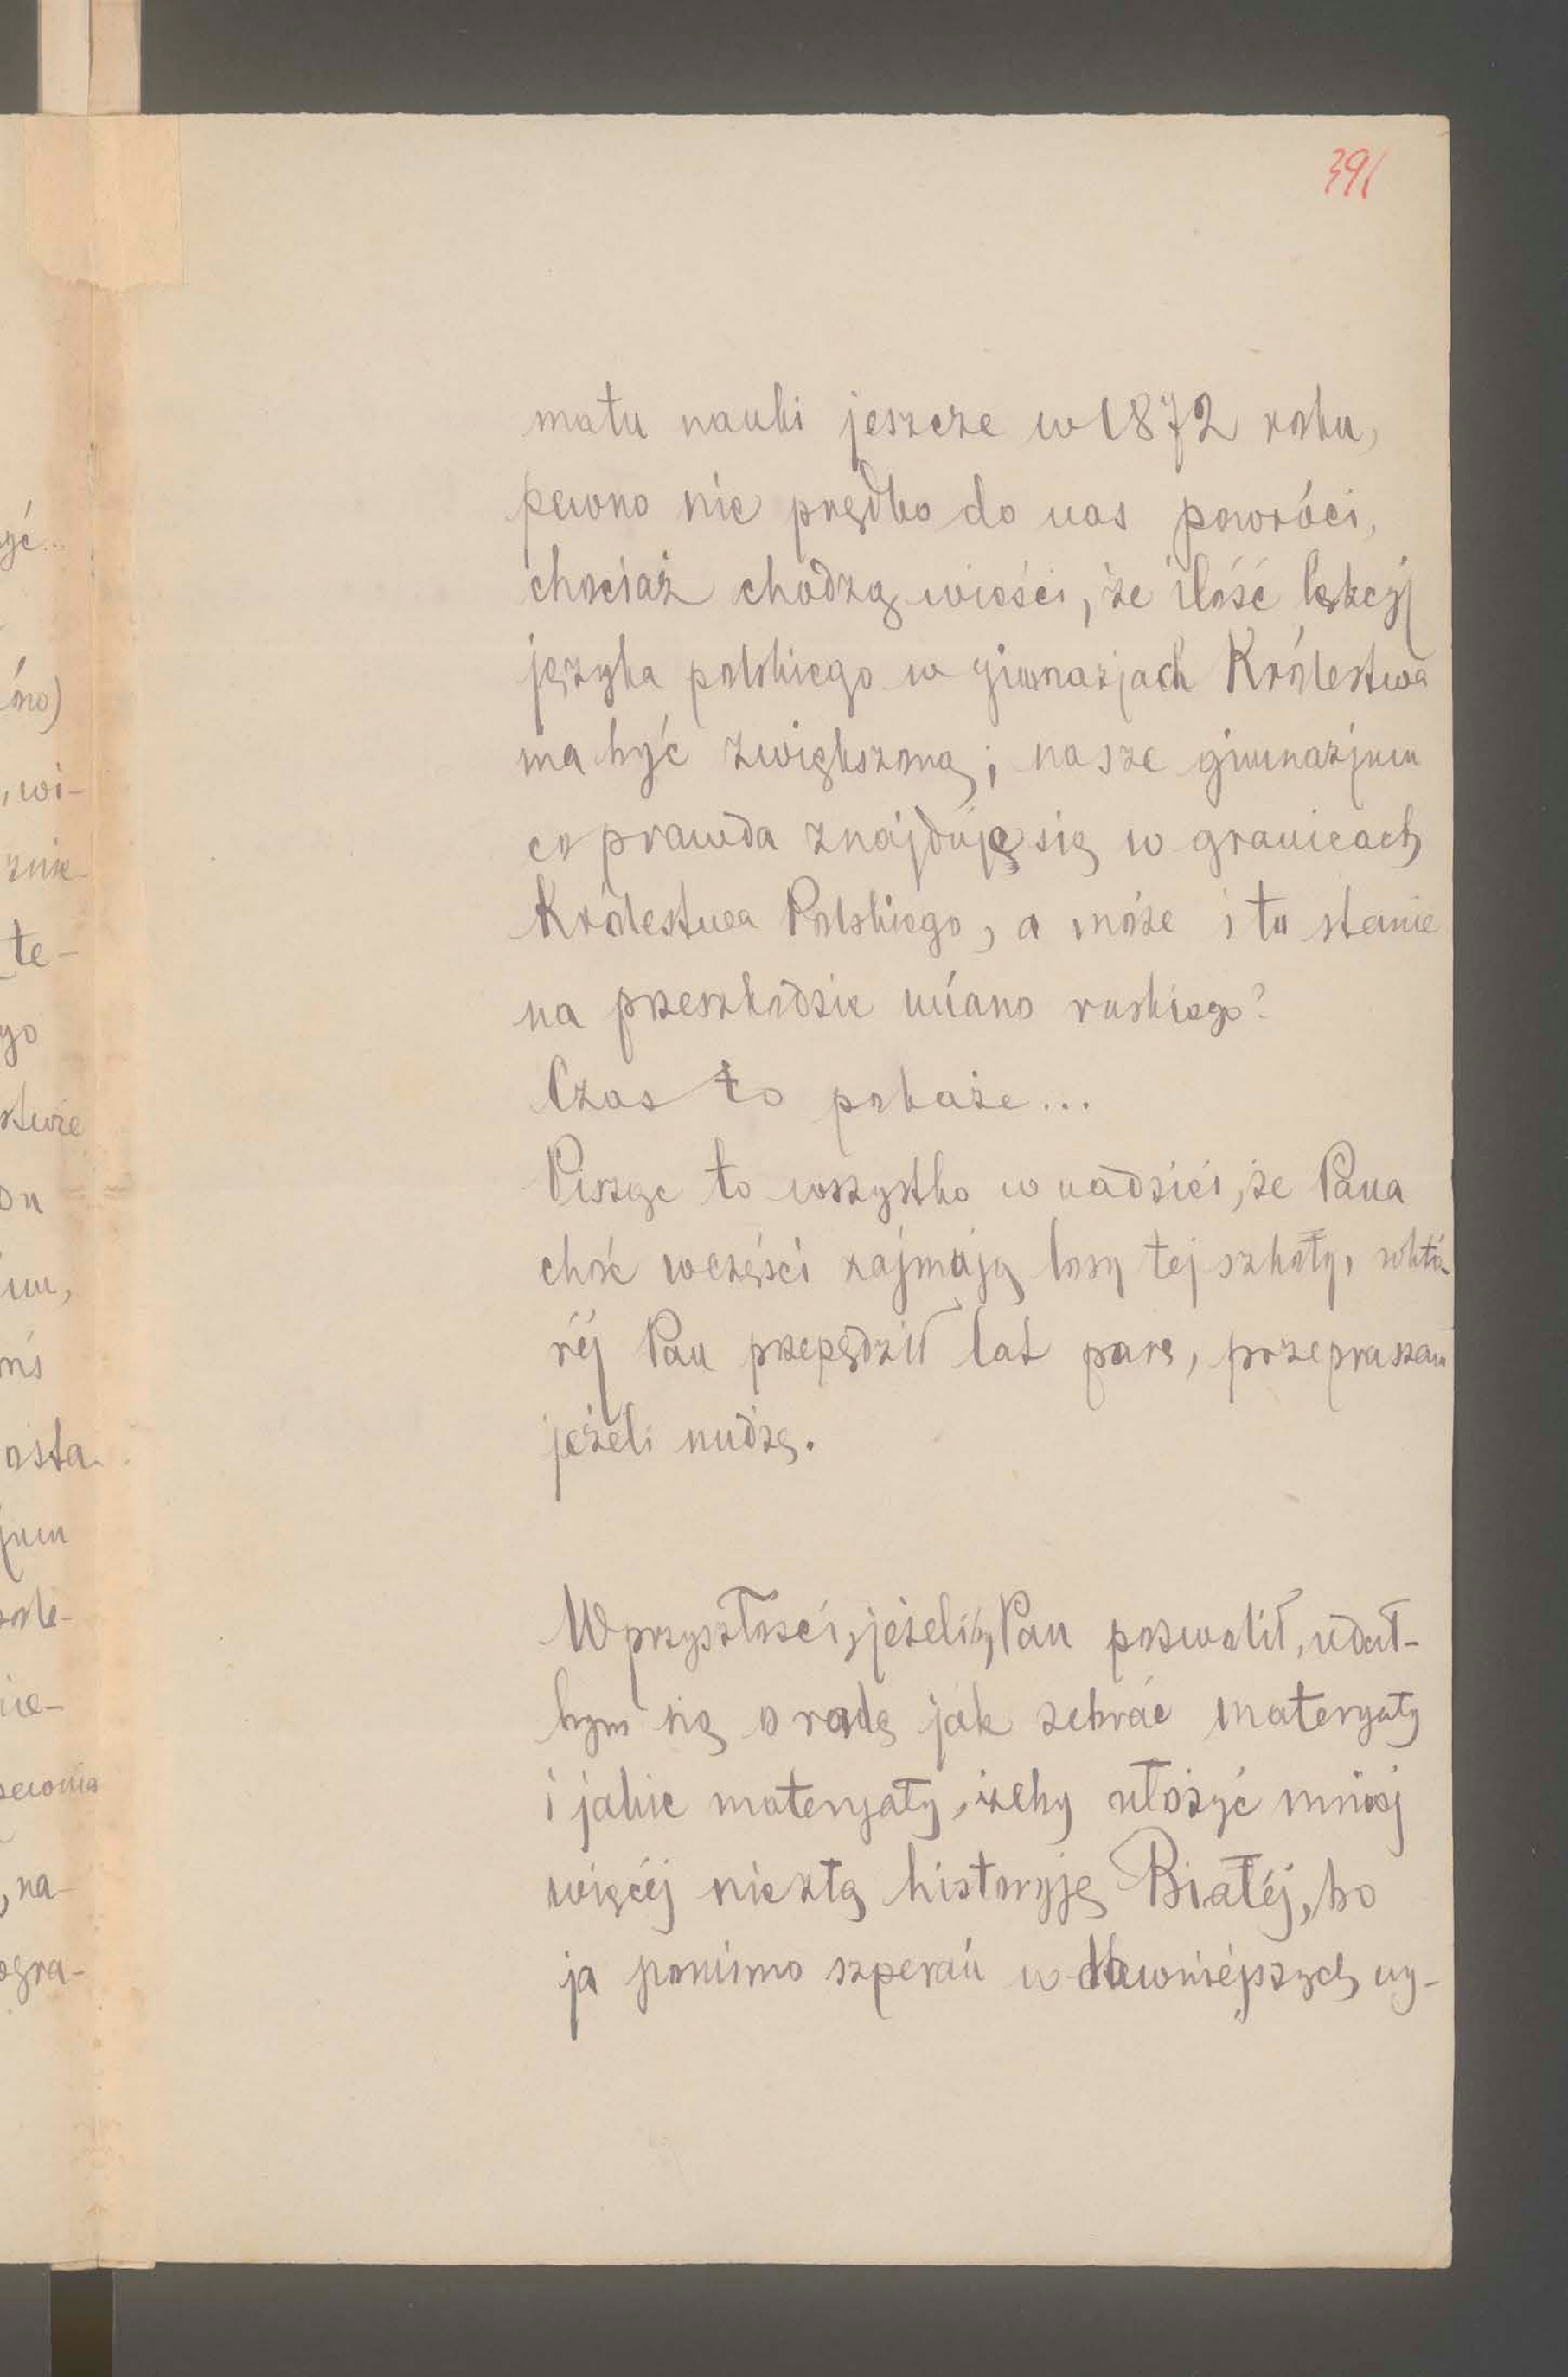 391
matu nauki jeszcze w 1872 roku,
pewno nie prędko do nas powróci,
chociaż chodzą wieści, że ilość lekcyj
języka polskiego w gimnazjach Królestwa
ma być zwiększoną; nasze gimnazjum
co prawda znajduje się w granicach
Królestwa Polskiego, a może i tu stanie
na przeszkodzie miano ruskiego?
Czas to pokaże...
Piszę to wszystko w nadziei, że Pana
choć w części zajmują losy tej szkoły, w któ-
réj Pan przepędził lat parę, przepraszam
jeżeli nudzę.
W przyszłości, jeżeliby Pan pozwolił, udał-
bym się o radę jak zebrać materyały
i jakie materyały, żeby ułożyć mniéj
więcéj niezłą historyję Białéj, bo
ja pomimo szperań w dawniejszych wy-
yć...
óno)
, wi-
znie-
te-
go
stwie
du
im,
nś
osta-
jum
ole-
nie-
, na-
ogra-